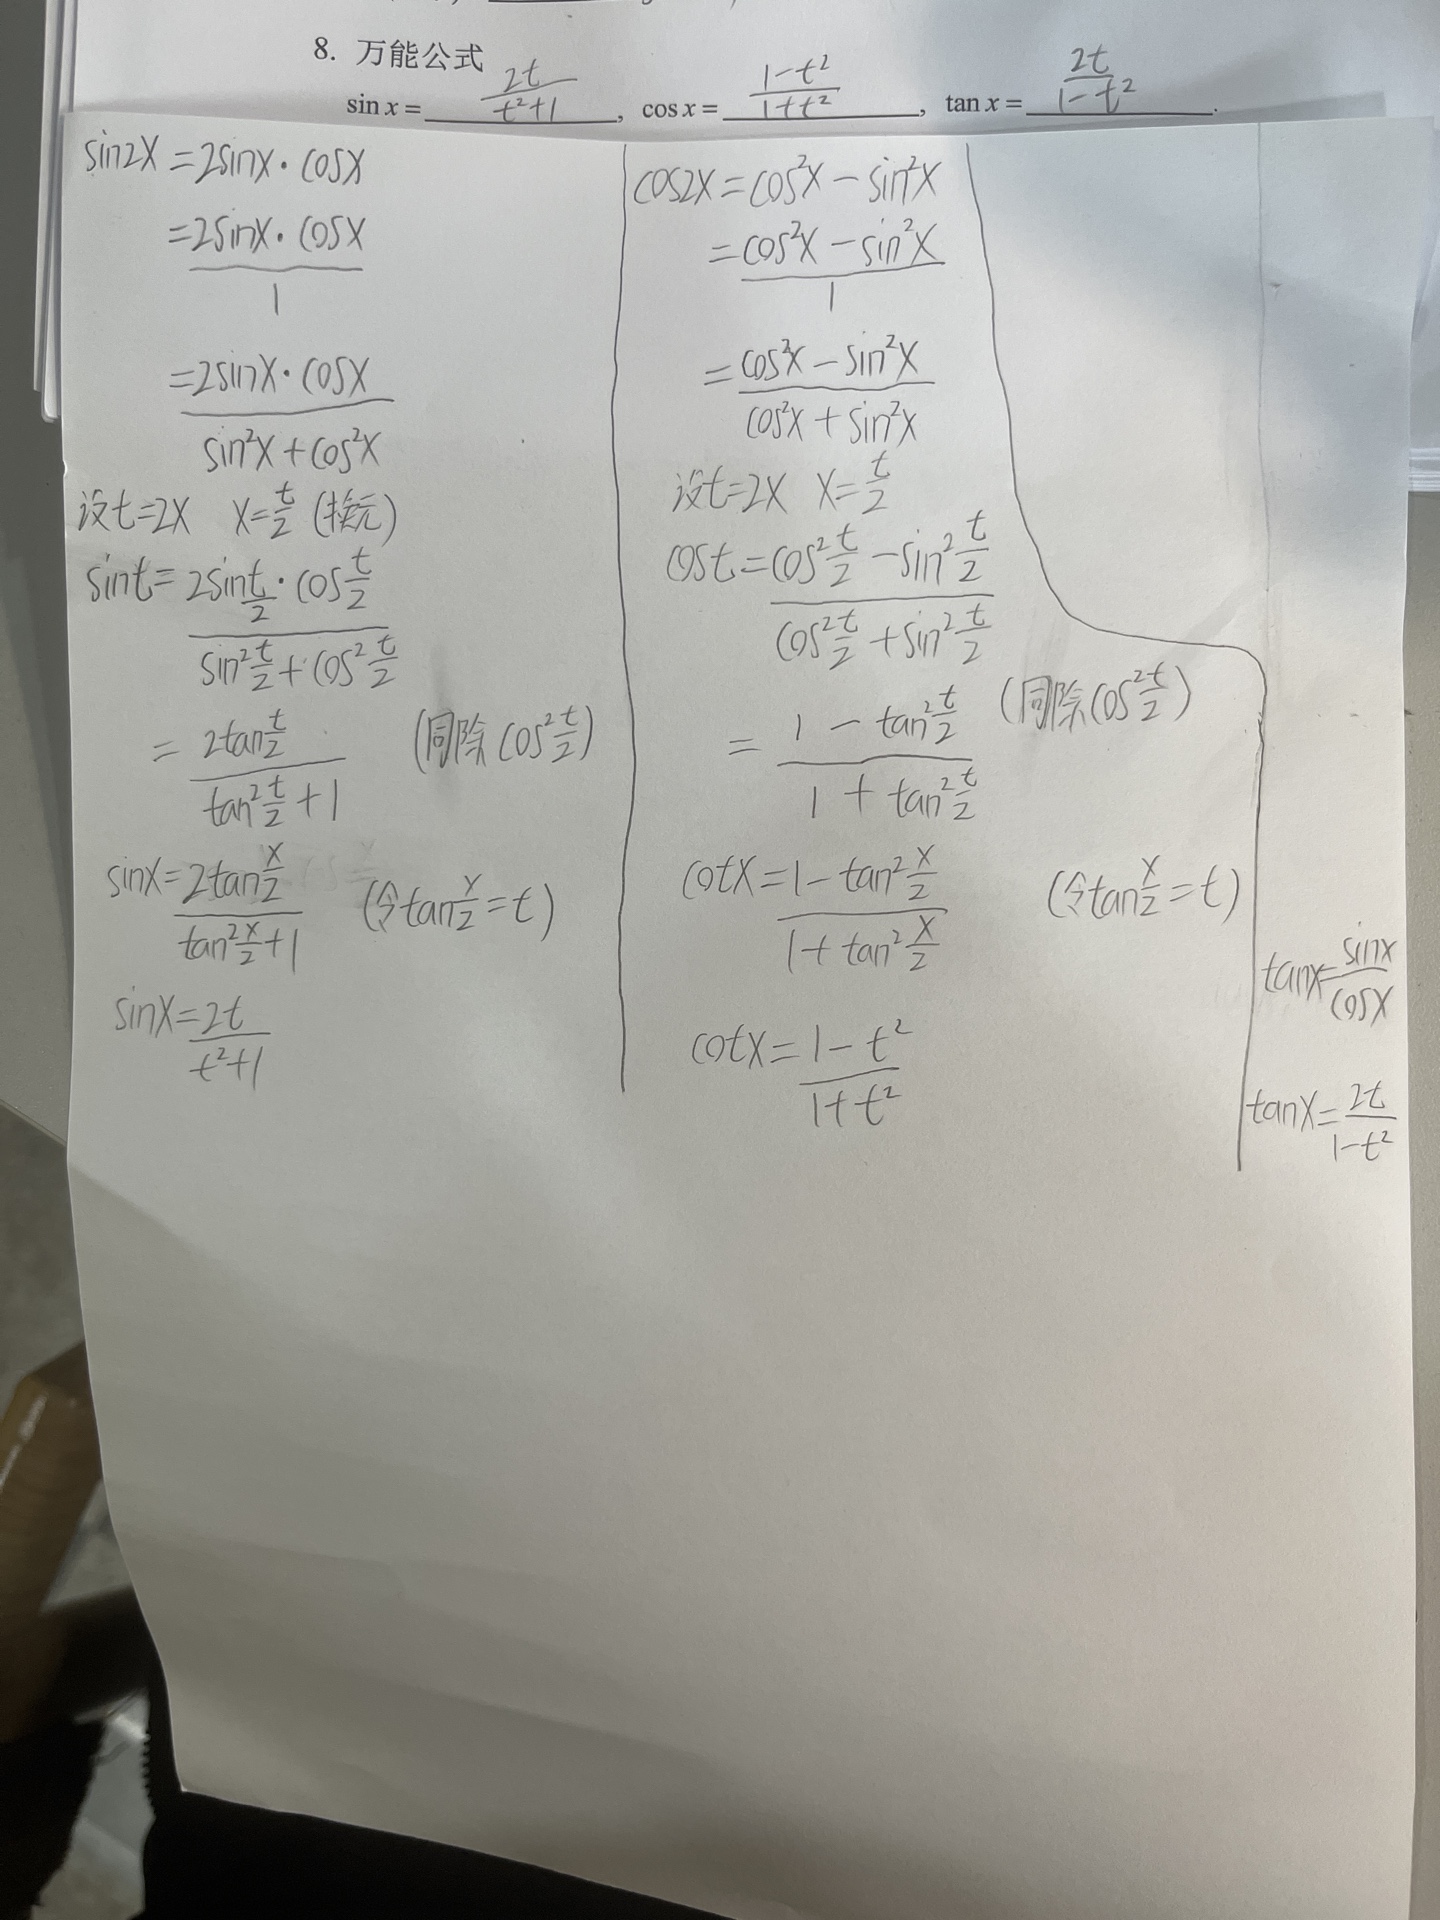 8. 万能公式
sin x = 2t/(t²+1), cos x = (1-t²)/(1+t²), tan x = 2t/(1-t²).
sin2x = 2sinx · cosx
= (2sinx · cosx)/1
= (2sinx · cosx)/(sin²x + cos²x)
设t=2x x=t/2 (换元)
sint = (2sin t/2 · cos t/2)/(sin² t/2 + cos² t/2)
= (2tan t/2)/(tan² t/2 + 1) (同除cos² t/2)
sinx = (2tan x/2)/(tan² x/2 + 1) (令tan x/2 = t)
sinx = 2t/(t²+1)
cos2x = cos²x - sin²x
= (cos²x - sin²x)/1
= (cos²x - sin²x)/(cos²x + sin²x)
设t=2x x=t/2
cost = (cos² t/2 - sin² t/2)/(cos² t/2 + sin² t/2)
= (1 - tan² t/2)/(1 + tan² t/2) (同除cos² t/2)
cotx = (1 - tan² x/2)/(1 + tan² x/2) (令tan x/2 = t)
cotx = (1 - t²)/(1 + t²)
tanx = sinx/cosx
tanx = 2t/(1-t²)